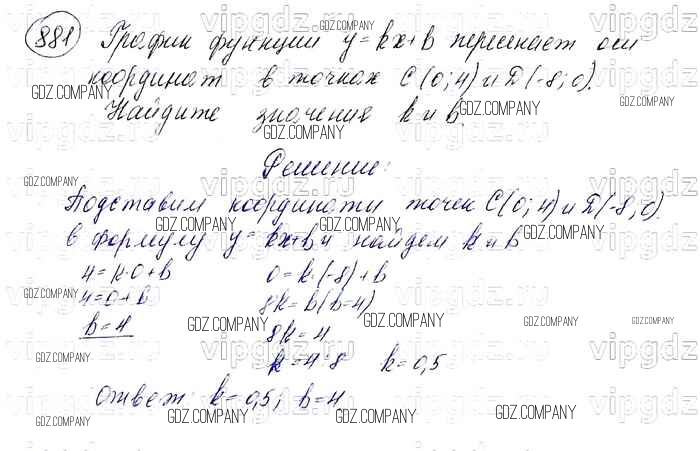 881 График функции y=kx+b пересекает оси
координат в точках C(0;4) и D(-8;0).
Найдите значения k и b
Решение:
Подставим координаты точек C(0;4) и D(-8;0).
в формулу y=kx+b и найдем k и b
4=k·0+b 0=k·(-8)+b
4=0+b 8k=b(b=4)
b=4 8k=4
k=4:8 k=0,5
Ответ k=0,5; b=4
GDZ.COMPANY
vipgdz.ru